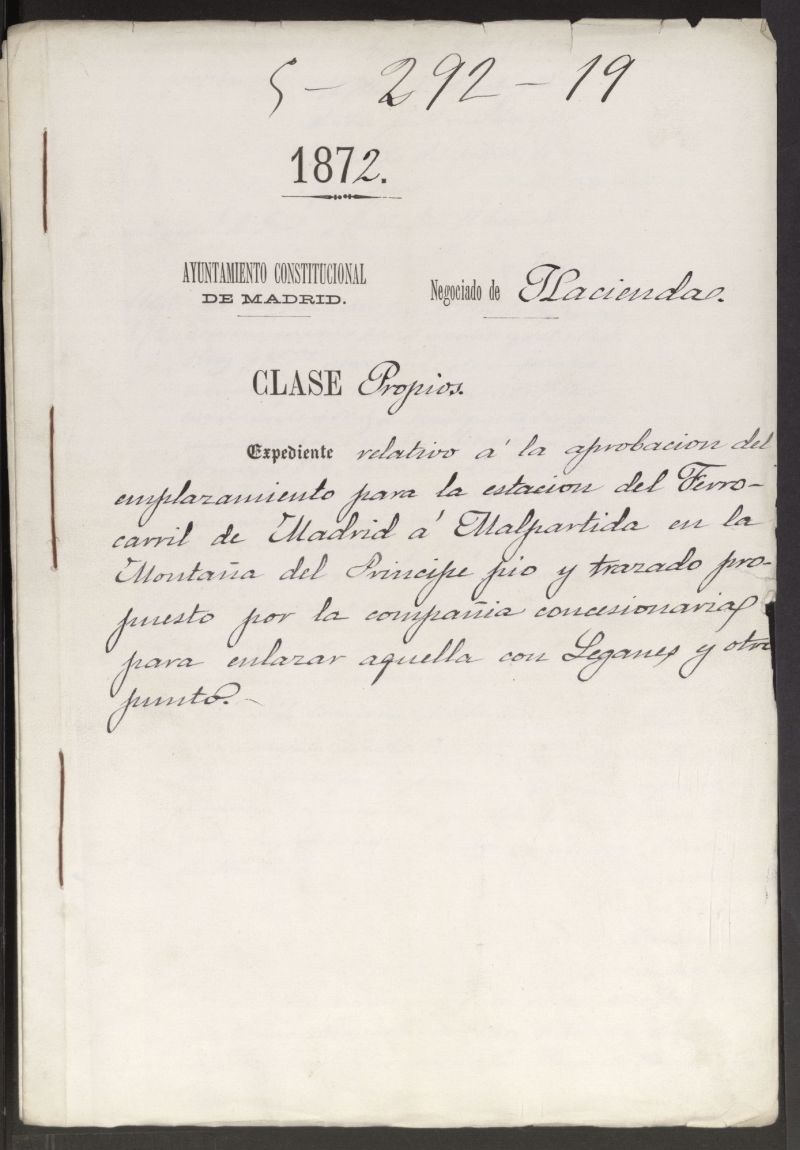 5 - 292 - 19
1872.
AYUNTAMIENTO CONSTITUCIONAL
DE MADRID.
Negociado de Hacienda.
CLASE Propios.
Expediente relativo á la aprobacion del
emplazamiento para la estacion del Ferro-
carril de Madrid á Malpartida en la
Montaña del Principe pio y trazado pro-
puesto por la compañia concesionaria
para enlazar aquella con Leganes y otro
punto.